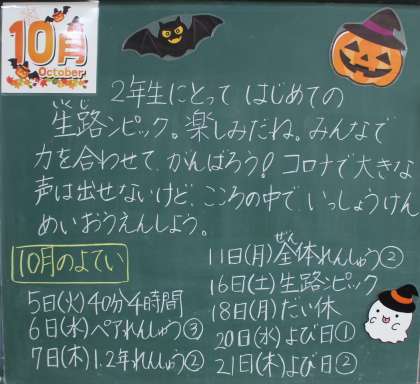 10月
October
2年生にとって はじめての
生路ンピック。楽しみだね。みんなで
力を合わせて、がんばろう！コロナで大きな
声は出せないけど、こころの中で、いっしょうけん
めいおうえんしよう。
10月のよてい
5日(火)40分4時間
6日(水)ペアれんしゅう③
7日(木)1.2年れんしゅう②
11日(月)全体れんしゅう②
ぜん
16日(土)生路ンピック
18日(月)だい休
20日(水)よび日①
21日(木)よび日②